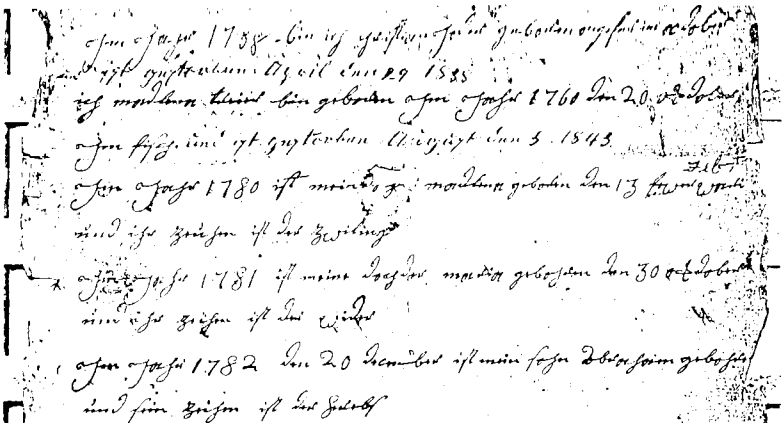 Im Jahr 1758 bin ich christian geboren im october
ist gestorben April den 29 1838
ich madlena bin geboren Im Jahr 1760 den 20 october
Im fisch und ist gestorben August den 3 1843
Im Jahr 1780 ist mein madlena geboren den 13
und ihr zeichen ist der zwiling
Im Jahr 1781 ist meine dochder maria gebohren den 30 ocktober
und ihr zeichen ist der wider
Im Jahr 1782 den 20 december ist mein sohn Abraham gebohren
und sein zeichen ist der krebs